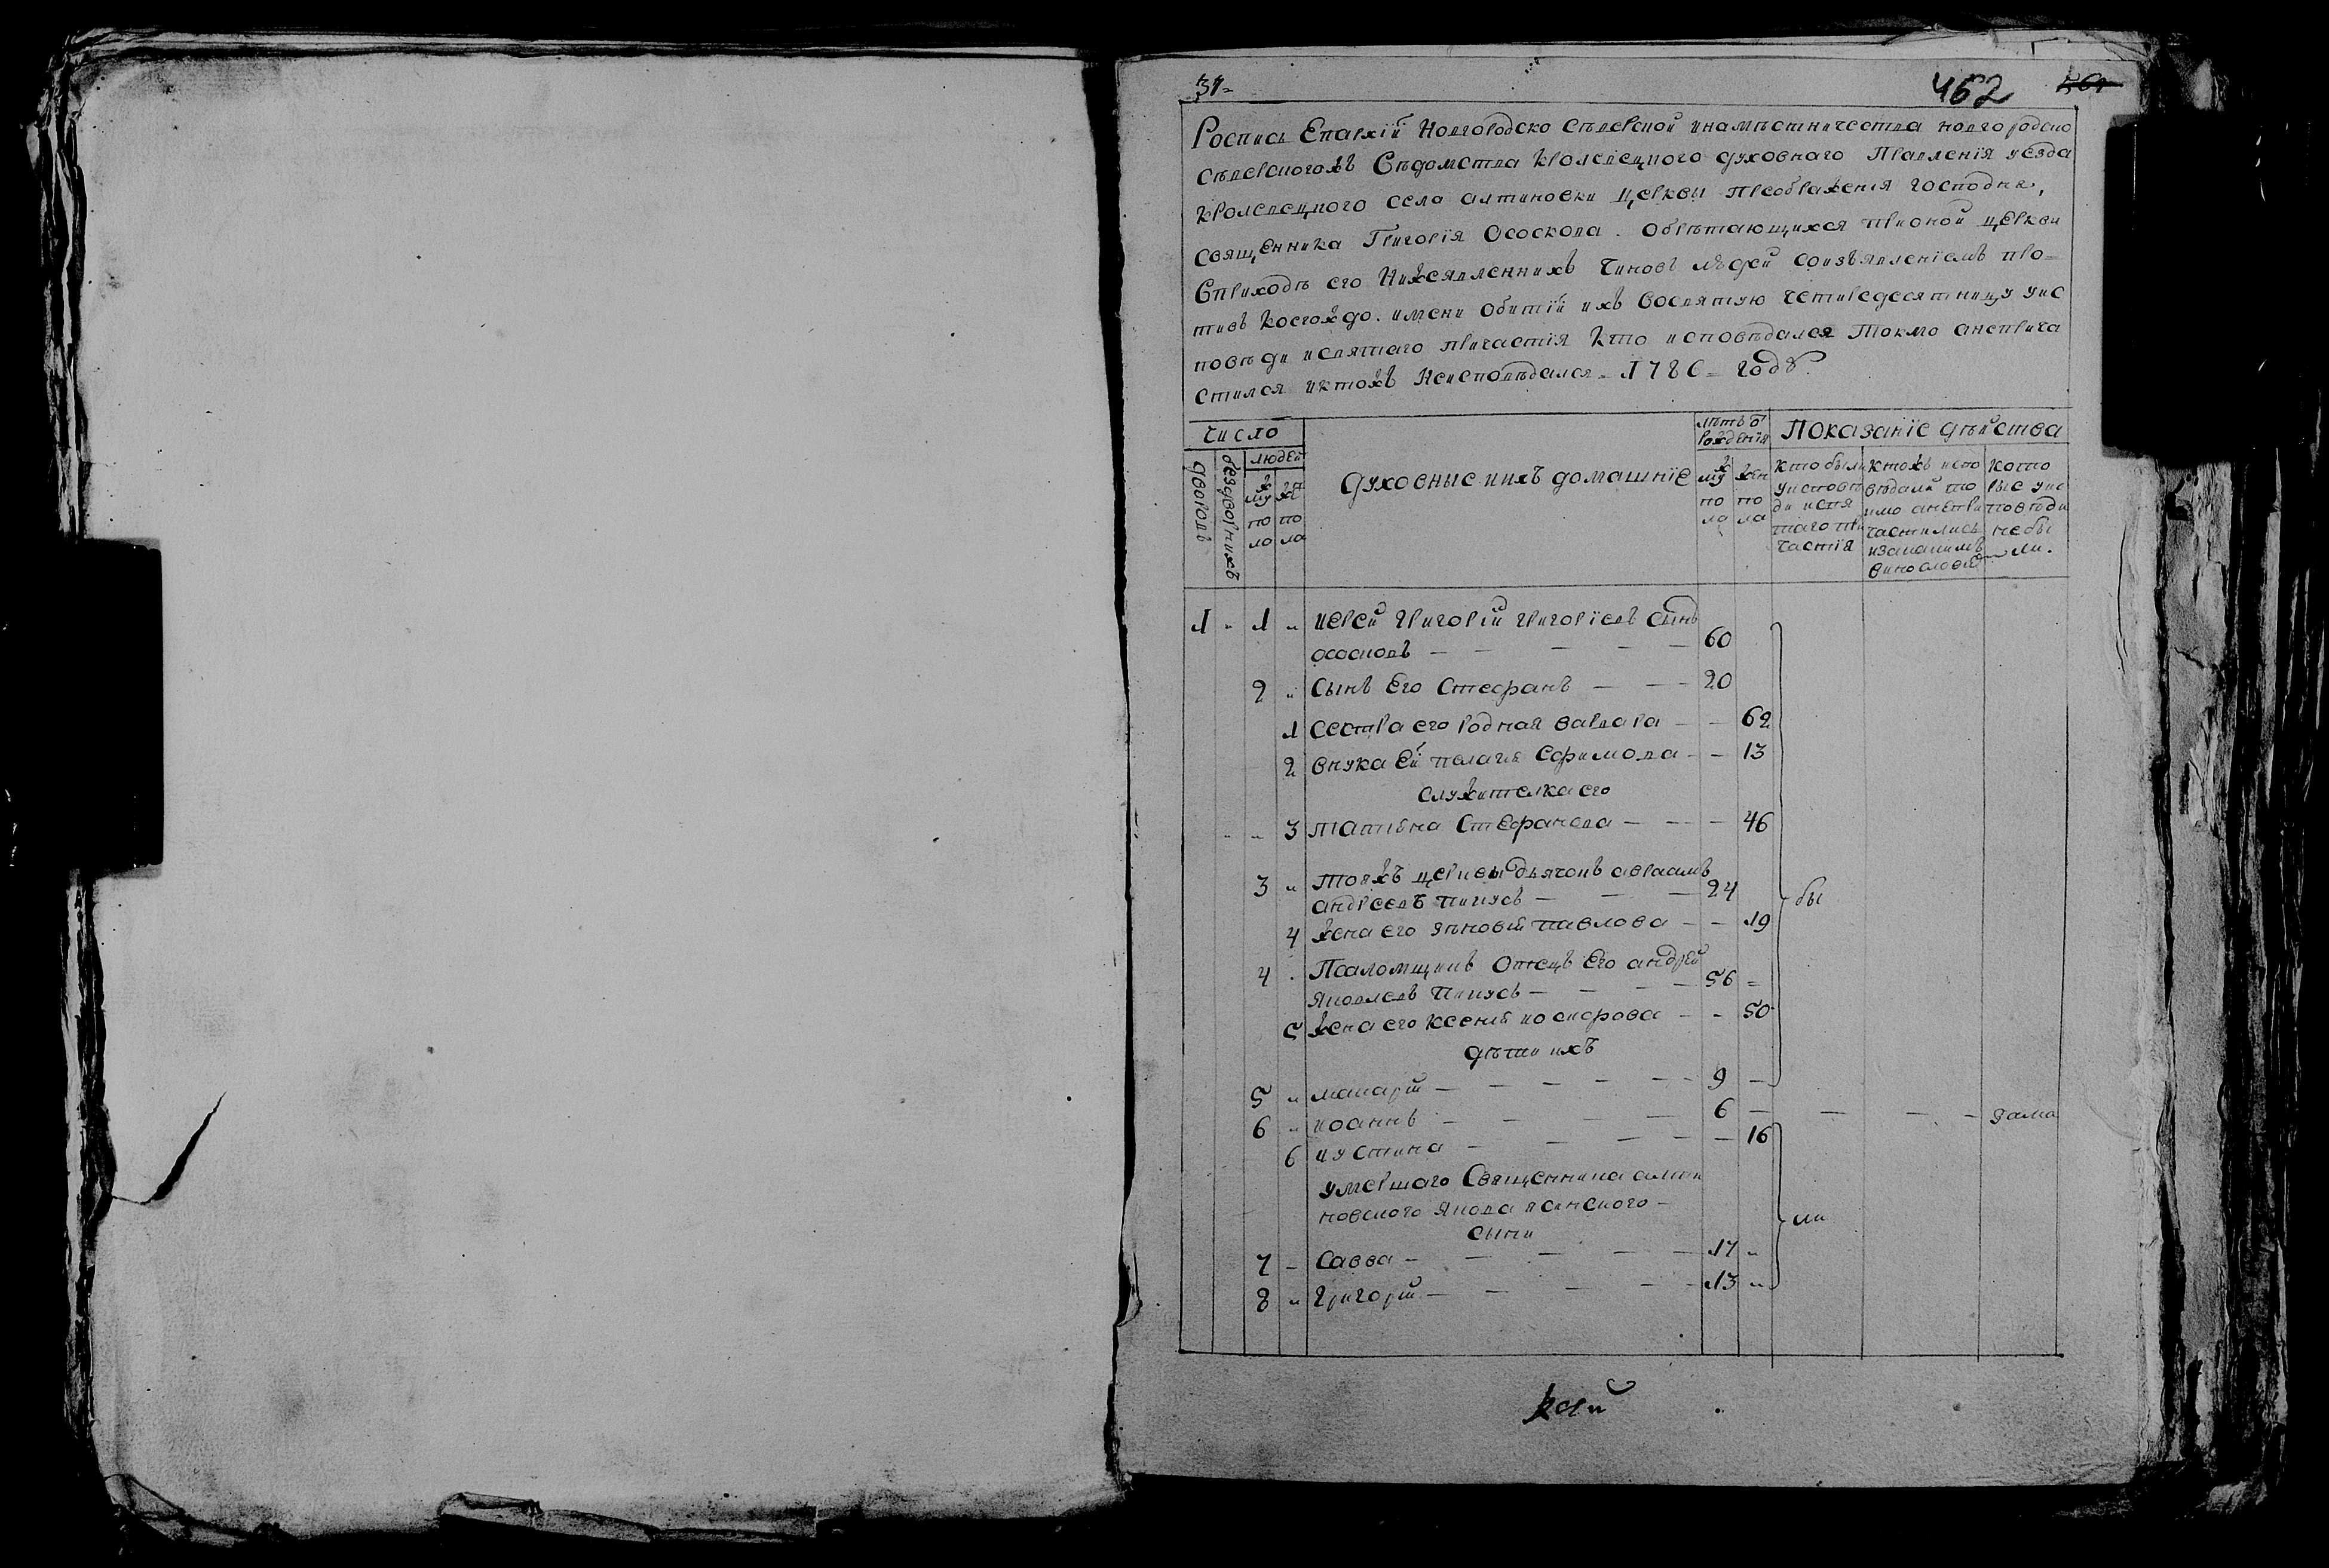 31
462
Роспись Епархїй Новгородско Сѣверской инамѣстничества новгородско
Сѣверскогожъ Сѣдомства Кролевецкого духовнаго Правленїя уезда
Кролевецкого села алтиновки церкви преображенїя господня,
священника Григорїя Ососкова. Обрѣтающихся прионой церкви
Сприходѣ его Нижеявленнихъ Чиновъ людей соизъявленїемъ про-
тивъ коегождо имени Обитїй ихъ восвятую четиредесятницу уис
повѣди исвятаго причастїя Кто исповѣдался Токмо анеприча
стился иктожъ Неисповѣдался 1786 годУ.
число
людей
дворовъ
бездворнихъ
муж
по
ла
жен
по
ла
духовные иихъ домашнїе
лѣтъ ѿ
рожденїя
муж
по
ла
жен
по
ла
Показанїе дѣйства
кто были
уисповѣ
ди исвя
таго при
частїя
ктожъ испо
вѣдали то
кмо анепри
частились
изакакимъ
винословїем
кото
рые уис
повѣди
небы
ли.
1 " 1 " иерей григорїй григорїевъ синъ
ососковъ — 60
2 " Сынъ Его Стефанъ — 20
1 сестра его родная варвара — 62
2 внука Ей пелагия Ефимова — 13
служителка его
3 татїяна Стефанова — 46
3 " тояжъ церкви дьячокъ авраамъ
андреевъ пикусъ — 24
бы
4 жена его зѣновїя павлова — 19
4 Псаломщикъ Отецъ Его андрей
яковлевъ Пикусъ — 56
5 жена его ксенїя никифорова — 50
дѣти ихъ
5 " макарїй — 9
6 " иоаннъ — 6 — зама
6 иустина — 16
умершаго Священника алти
новского якова ясенского
ли
сыни
7 – Савва — 17 "
8 " Григорїй — 13 "